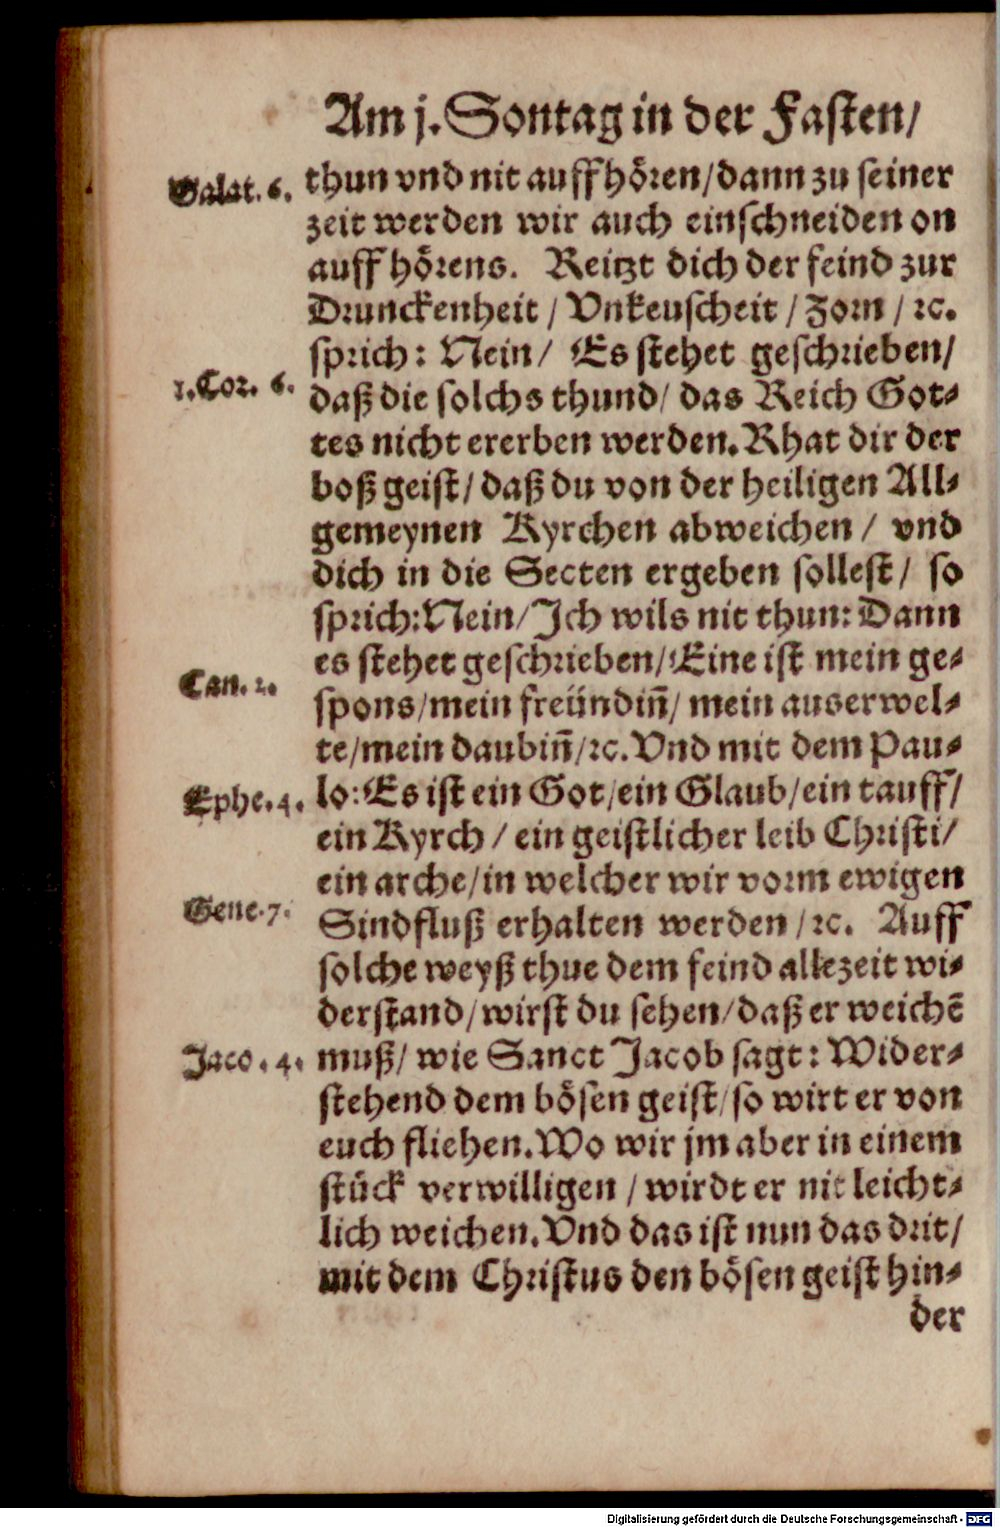 Am j. Sontag in der Fasten/
Galat. 6. thun vnd nit auffhören/dann zu seiner
zeit werden wir auch einschneiden on
auffhörens. Reitzt dich der feind zur
Drunckenheit / Vnkeuscheit / Zorn / ꝛc.
sprich: Nein/ Es stehet geschrieben/
1. Cor. 6. daß die solchs thund/ das Reich Got⸗
tes nicht ererben werden. Rhat dir der
boß geist/ daß du von der heiligen All⸗
gemeynen Kyrchen abweichen / vnd
dich in die Secten ergeben sollest/ so
sprich: Nein/ Ich wils nit thun: Dann
es stehet geschrieben/ Eine ist mein ge⸗
Can. 2. spons/mein freündiñ/ mein auserwel⸗
te/mein daubiñ/ꝛc. Vnd mit dem Pau⸗
Ephe. 4. lo: Es ist ein Got/ein Glaub/ein tauff/
ein Kyrch / ein geistlicher leib Christi/
ein arche/in welcher wir vorm ewigen
Gene. 7. Sindfluß erhalten werden /ꝛc. Auff
solche weyß thue dem feind allezeit wi⸗
derstand/wirst du sehen/daß er weichẽ
Jaco. 4. muß/ wie Sanct Jacob sagt: Wider⸗
stehend dem bösen geist/so wirt er von
euch fliehen. Wo wir jm aber in einem
stück verwilligen / wirdt er nit leicht⸗
lich weichen. Vnd das ist nun das drit/
mit dem Christus den bösen geist hin⸗
der
Digitalisierung gefördert durch die Deutsche Forschungsgemeinschaft - DFG